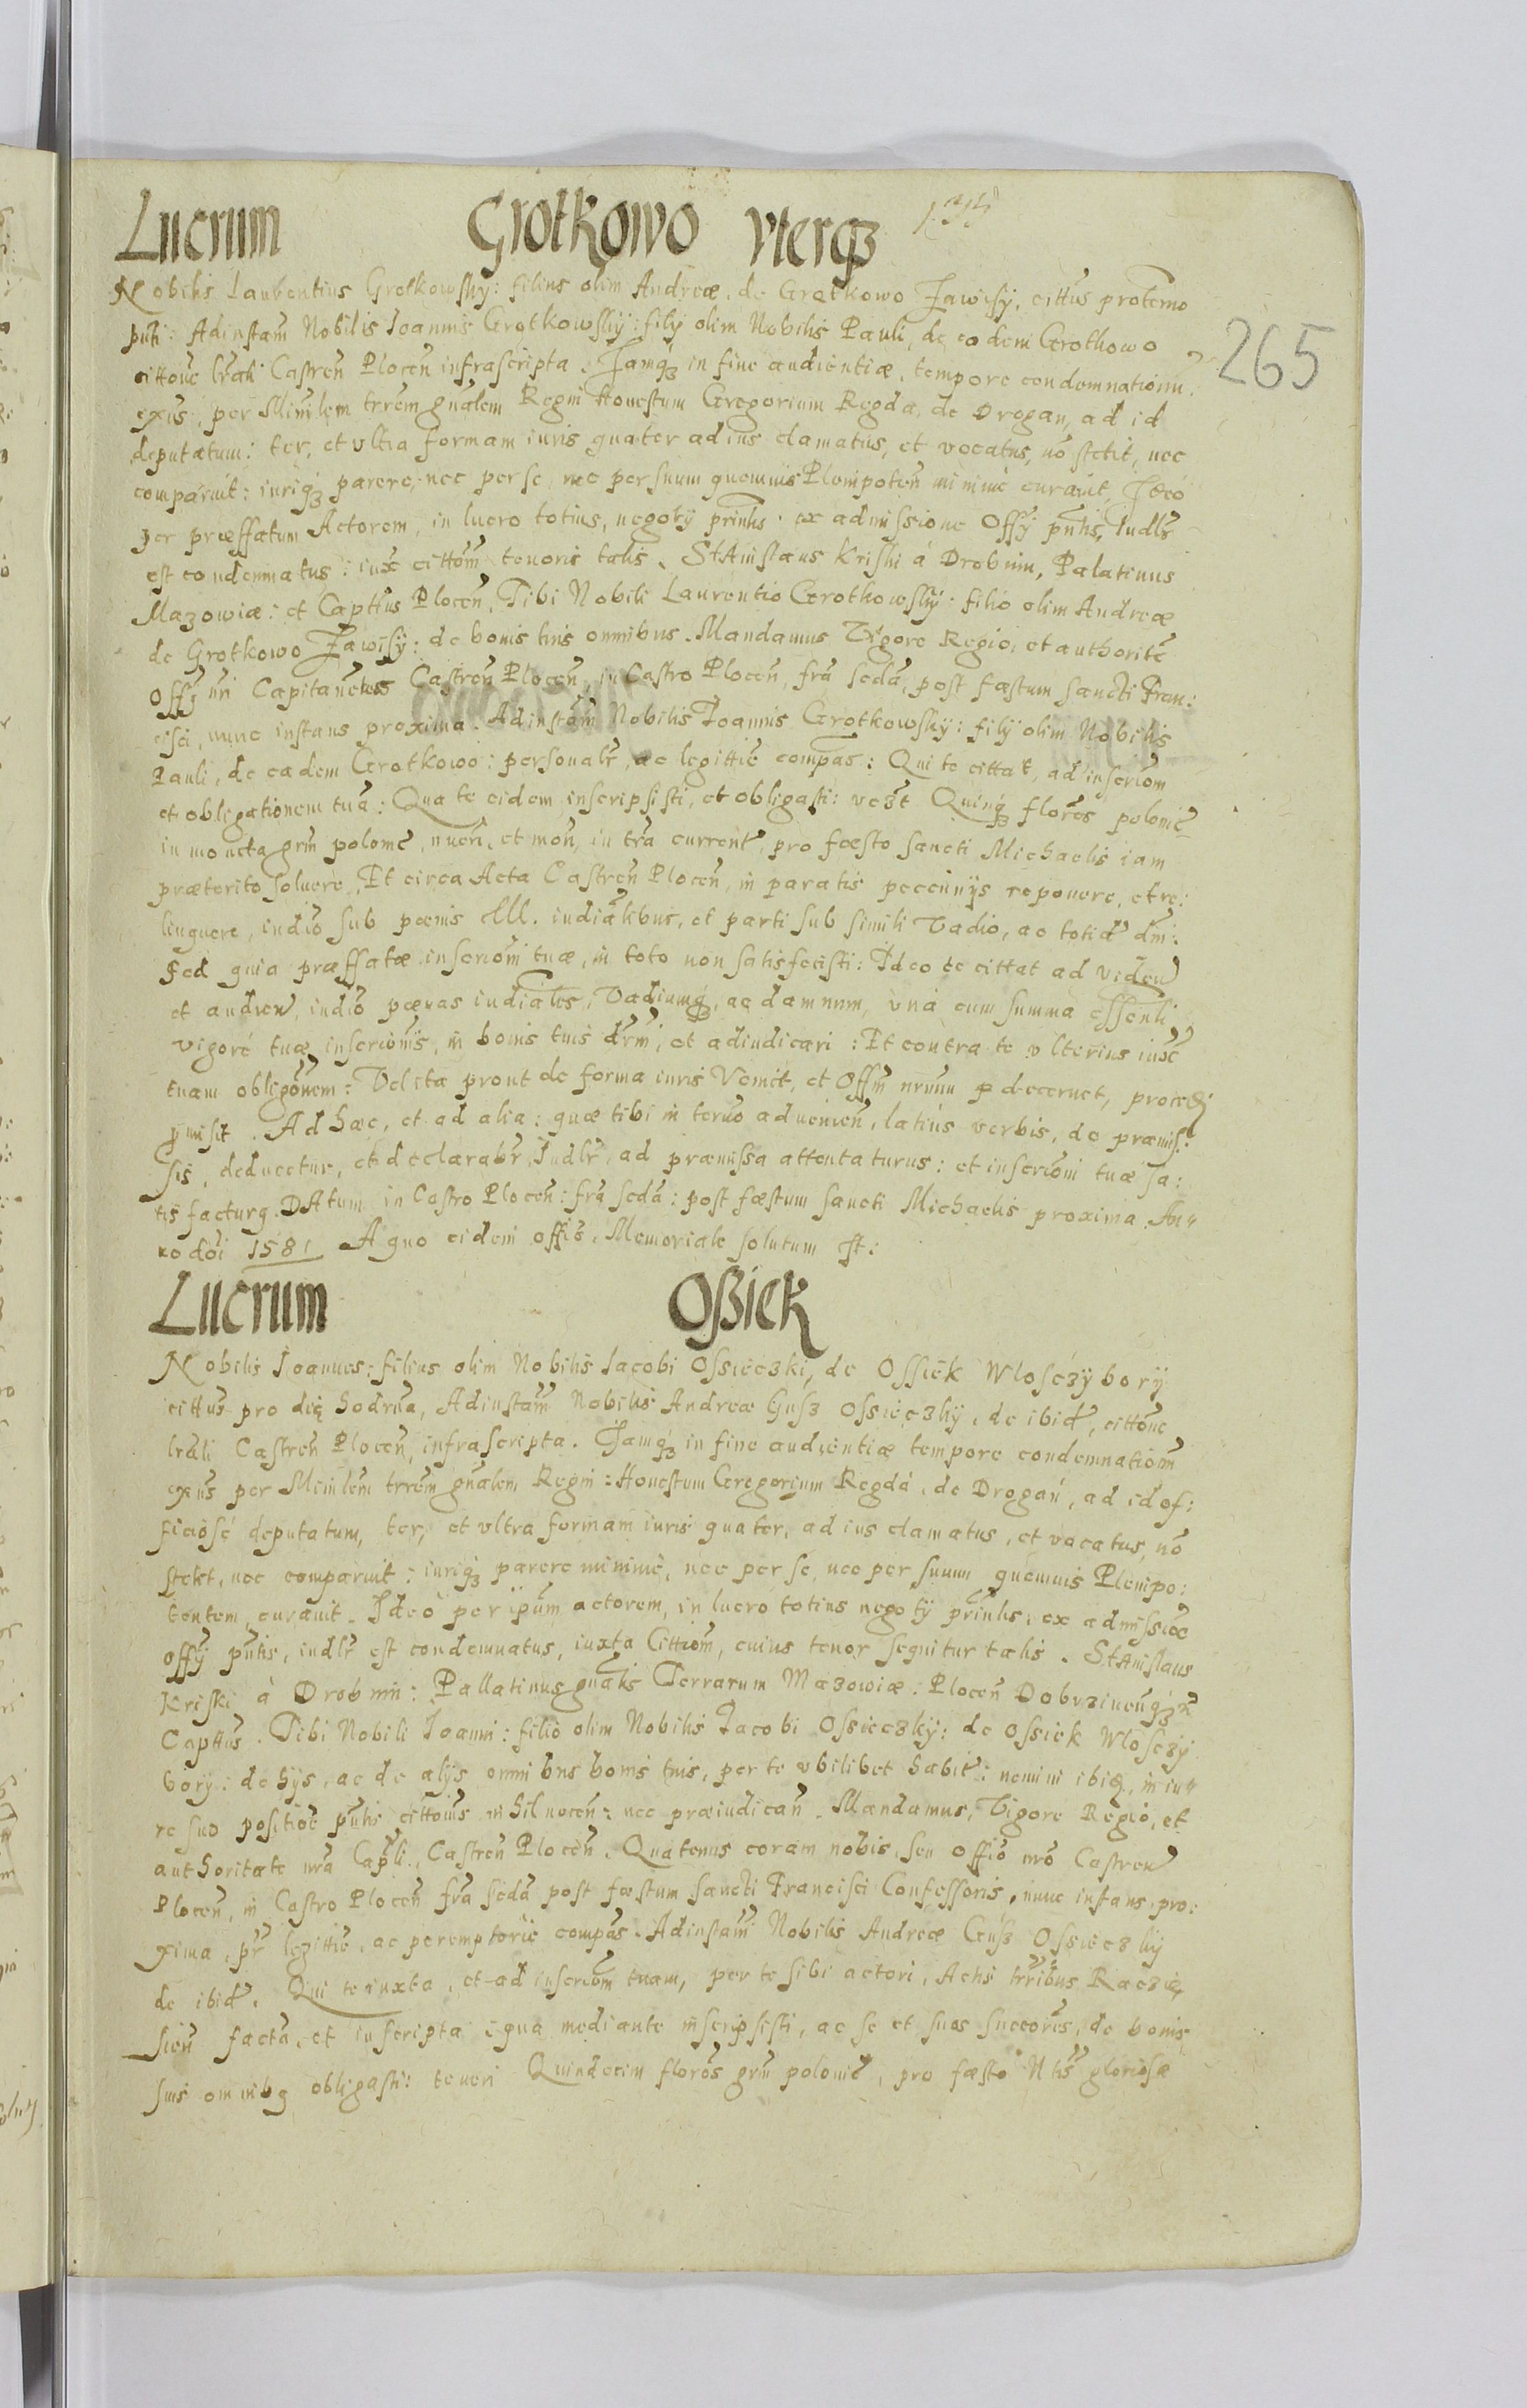 Lucrum Grotkowo Vterq3
265
Nobilis Laurentius Grotkowsky: filius olim Andreæ, de Grotkowo Jawisy, cittus pro termo
pnti: Ad instam̃ Nobilis Joannis Grotkowsky: filÿ olim Nobilis Pauli, de eodem Grotkowo
cittoñe lrali Castreñ Ploceñ infrascripta. Jamq3 in fine audientiæ, tempore condemnationu
exñs, per Minĩlem trrem gñalem Regni Honestum Gregorium Regda, de Drogan, ad id
deputatum: ter, et vltra formam iuris quater ad ius clamatus, et vocatus, nõ stetit, nec
comparuit: iuriq3 parere, nec per se, nec per suum quemuis Plenipoteñ minimè curauit, Ideò
per præffatum Actorem, in lucro totius, negotÿ prĩnlis. ex admissione Offÿ pñtis, Iudlr
est condemnatus: iux cittom̃ tenoris talis. Stanislaus Kriski à Drobnin, Palatinus
Mazowiæ: et Capttus Ploceñ, Tibi Nobili Laurentio Grotkowsky: filio olim Andreæ
de Grotkowo Jawisy: de bonis tuis omnibus. Mandamus Vigore Regio, et authoritẽ
Offÿ nri Capitaneles Castreñ Ploceñ, in Castro Ploceñ, frã sedã, post fæstum sancti Fran:
cisci, nunc instans proxima. Ad instam̃ Nobilis Joannis Grotkowsky: filÿ olim Nobilis
Pauli, de eadem Grotkowo: personalr, ac legittiẽ compas: Qui te cittat, ad inscriom̃
et obligationem tuã: Qua te eidem inscripsisti, et obligasti: vc3t Quinq3 flores polonic̃
in moneta grm polonic̃, nueri, et moñ, in trã current, pro fæsto sancti Michaelis iam
præterito soluere, Et circa Acta Castreñ Ploceñ, in paratis peccunÿs reponere, et re:
linquere, iudiõ sub pœnis lll. iudiãlibus, et parti sub simili Vadio, ac totid̃ dm̃:
Sed quia præffatæ inscriom̃ tuæ, in toto non satisfecisti: Ideo te cittat ad videñ
et audieñ, iudiõ pœnas iudiãles, Vadiumq3, ac damnum, vnà cum summa essenli
vigore tuæ inscrionis, in bonis tuis drm̃, et adiudicari: Et contra te vlterius iux
tuam obligoñem: Delita prout de forma iuris Venit, et Offm̃ nrum p decernet, procedi
pmisit. Ad hæc, et ad alia: quæ tibi in termo adueniẽn, latius verbis, de præmis:
sis, deducetur, et declarabr, Iudlr, ad præmissa attentaturus: et inscriom̃ tuæ sa:
tis facturg. DAtum in Castro Ploceñ: frã sedã: post fæstum sancti Michaelis proxima An=
no doi 1581 A quo eidem offiõ. Memoriale solutum st:
Lucrum Oßiek
Nobilis Joannes: filius olim Nobilis Jacobi Ossieczki, de Ossiek Wlosczybory
cittus pro die hodrna, Ad instam̃ Nobilis Andreæ Gusz Ossieczky, de ibid̃, cittoñe
lrali Castreñ Ploceñ, infrascripta. Jamq3 in fine audientiæ tempore condemnationm̃
exñs per Minĩlem trrem gñalem Regni: Honestum Gregorium Regdà, de Drogan, ad id of:
ficiosè deputatum, ter, et vltra formam iuris quater, ad ius clamatus, et vocatus, nõ
stetit, nec comparuit: iuriq3 parere minimè, nec per se, nec per suum quemuis Plenipo:
tentem, curauit. Ideò per ipsum actorem, in lucro totius negotÿ prĩnlis, ex admissioẽ
offÿ pñtis, iudlr est condemnatus, iuxta Cittiom̃, cuius tenor sequitur talis. Stanislaus
Kriski à Drobnin: Pallatinus gñalis Terrarum Mazowiæ: Ploceñ Dobrzineñq3
Capttus. Tibi Nobili Joanni: filiò olim Nobilis Jacobi Ossieczky: de Ossiek Wlosczy
bory: de hÿs, ac de alÿs omnibus bonis tuis, per te vbilibet habit̃: nemini ibiq, in iu=
re suo positioẽ pñlis cittonis nihil noceñ: nec præiudicañ. Mandamus, Vigore Regio, et
authoritate nra Capli, Castreñ Ploceñ. Quatenus coram nobis, seu Offiõ nrõ Castreñ
Ploceñ, in Castro Ploceñ frã sedã post fæstum sancti Francisci Confessoris, nunc instans, pro:
xima, pr legittiẽ, ac peremptoriẽ compas. Ad instam̃ Nobilis Andreæ Gusz Ossieczky
de ibid̃. Qui te iuxta, et ad inscriom̃ tuam, per te sibi actori, Actis trribus Racziẽ,
sieñ facta, et inscripta: qua mediante inscripsisti, ac se et suos succores, de bonis
suis omnibg obligasti: teneri Quindecim flores grm polonic̃, pro fæsto Ntis gloriosæ